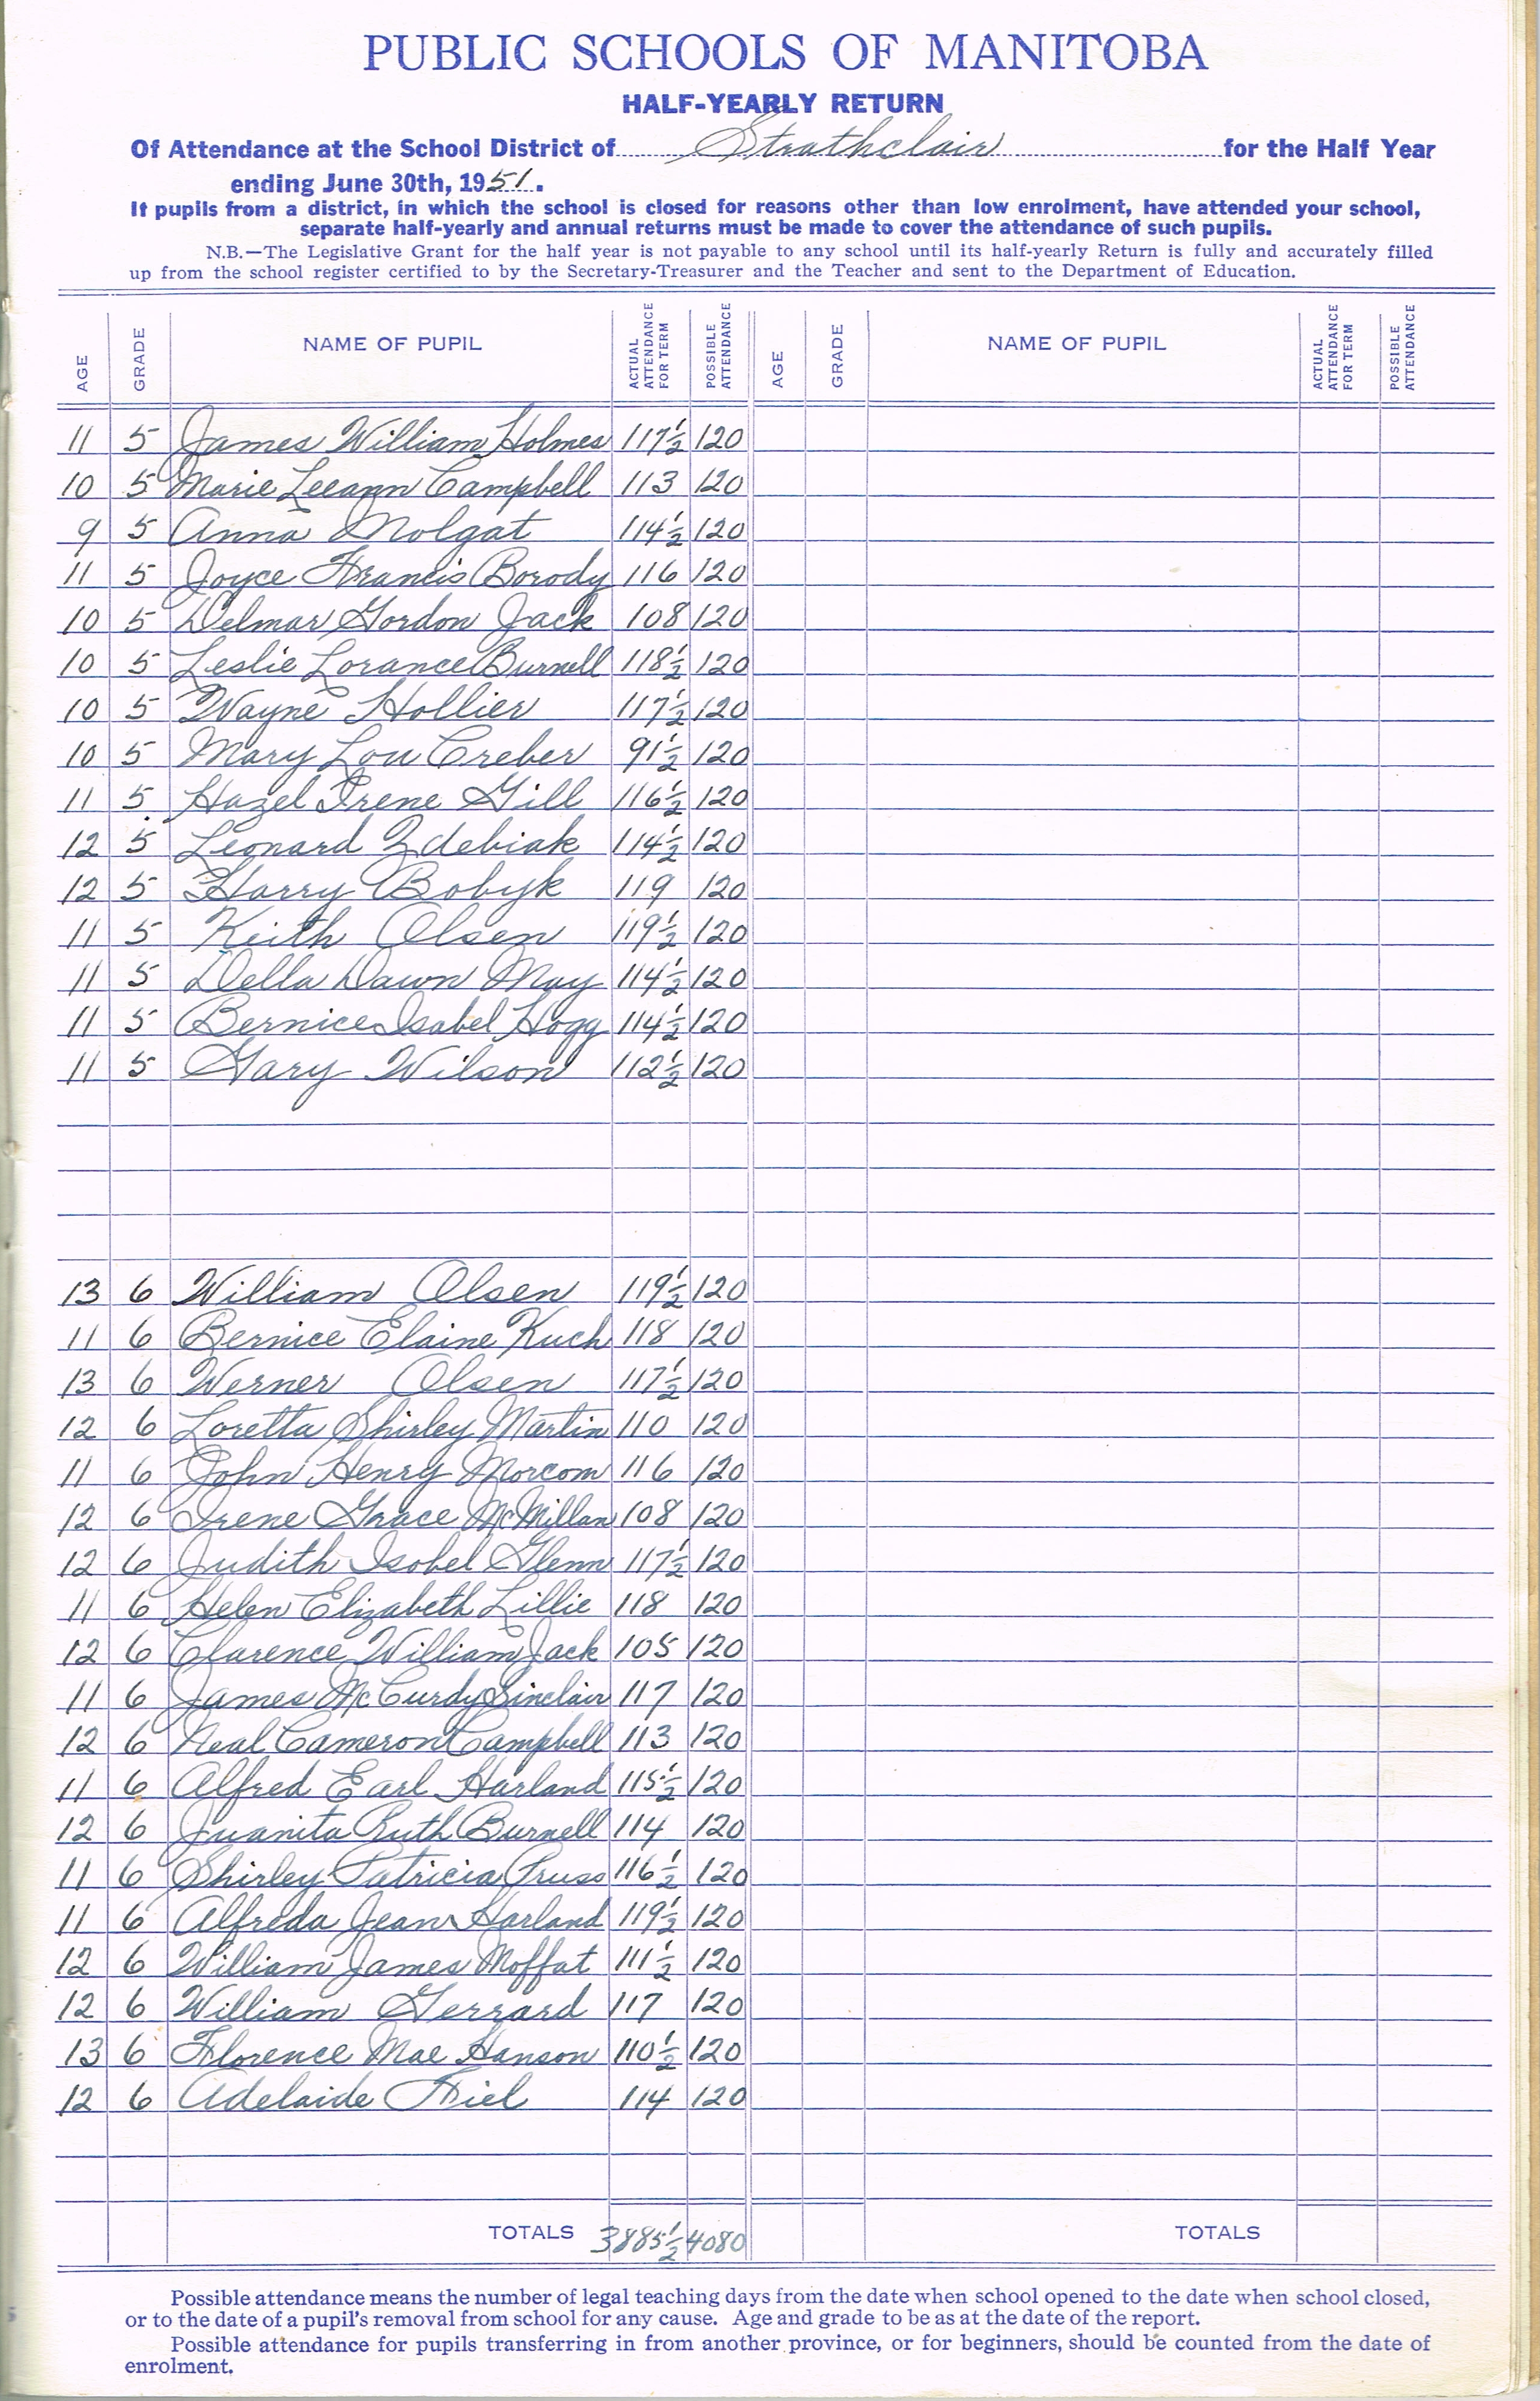 PUBLIC SCHOOLS OF MANITOBA
HALF-YEARLY RETURN
Of Attendance at the School District of Strathclair for the Half Year
ending June 30th, 1951.
If pupils from a district, in which the school is closed for reasons other than low enrolment, have attended your school,
separate half-yearly and annual returns must be made to cover the attendance of such pupils.
N.B.—The Legislative Grant for the half year is not payable to any school until its half-yearly Return is fully and accurately filled
up from the school register certified to by the Secretary-Treasurer and the Teacher and sent to the Department of Education.
AGE GRADE NAME OF PUPIL ACTUAL ATTENDANCE FOR TERM POSSIBLE ATTENDANCE AGE GRADE NAME OF PUPIL ACTUAL ATTENDANCE FOR TERM POSSIBLE ATTENDANCE
11 5 James William Holmes 117½ 120
10 5 Marie Leeann Campbell 113 120
9 5 Anna Molgat 114½ 120
11 5 Joyce Francis Borody 116 120
10 5 Delmar Gordon Jack 108 120
10 5 Leslie Lorance Burnell 118½ 120
10 5 Wayne Hollier 117½ 120
10 5 Mary Lou Creber 91½ 120
11 5 Hazel Irene Gill 116½ 120
12 5 Leonard Zdebiak 114½ 120
12 5 Harry Bobyk 119 120
11 5 Keith Olsen 119½ 120
11 5 Della Dawn May 114½ 120
11 5 Bernice Isabel Hogg 114½ 120
11 5 Gary Wilson 112½ 120
13 6 William Olsen 119½ 120
11 6 Bernice Elaine Kuch 118 120
13 6 Werner Olsen 117½ 120
12 6 Loretta Shirley Martin 110 120
11 6 John Henry Morcom 116 120
12 6 Irene Grace McMillan 108 120
12 6 Judith Isobel Glenn 117½ 120
11 6 Helen Elizabeth Lillie 118 120
12 6 Clarence William Jack 105 120
11 6 James McCurdy Sinclair 117 120
12 6 Neal Cameron Campbell 113 120
11 6 Alfred Earl Harland 115½ 120
12 6 Juanita Ruth Burnell 114 120
11 6 Shirley Patricia Pruss 116½ 120
11 6 Alfreda Jean Harland 119½ 120
12 6 William James Moffat 111½ 120
12 6 William Gerrard 117 120
13 6 Florence Mae Hanson 110½ 120
12 6 Adelaide Friel 114 120
TOTALS 3885½ 4080 TOTALS
Possible attendance means the number of legal teaching days from the date when school opened to the date when school closed,
or to the date of a pupil's removal from school for any cause. Age and grade to be as at the date of the report.
Possible attendance for pupils transferring in from another province, or for beginners, should be counted from the date of
enrolment.